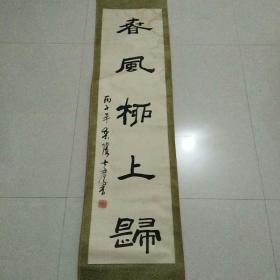 春風柳上歸
丙子年
書